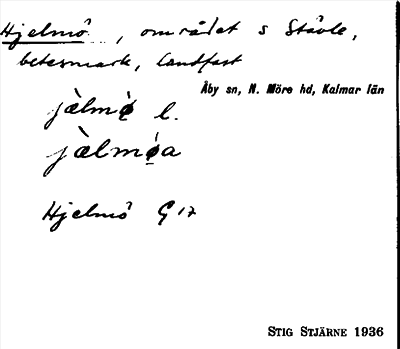 Hjelmö, området s Stävle,
betesmark, landfast
Åby sn, N. Möre hd, Kalmar län
jàlmø̀ l.
jàlmø̀a
Hjelmö G 17
STIG STJÄRNE 1936